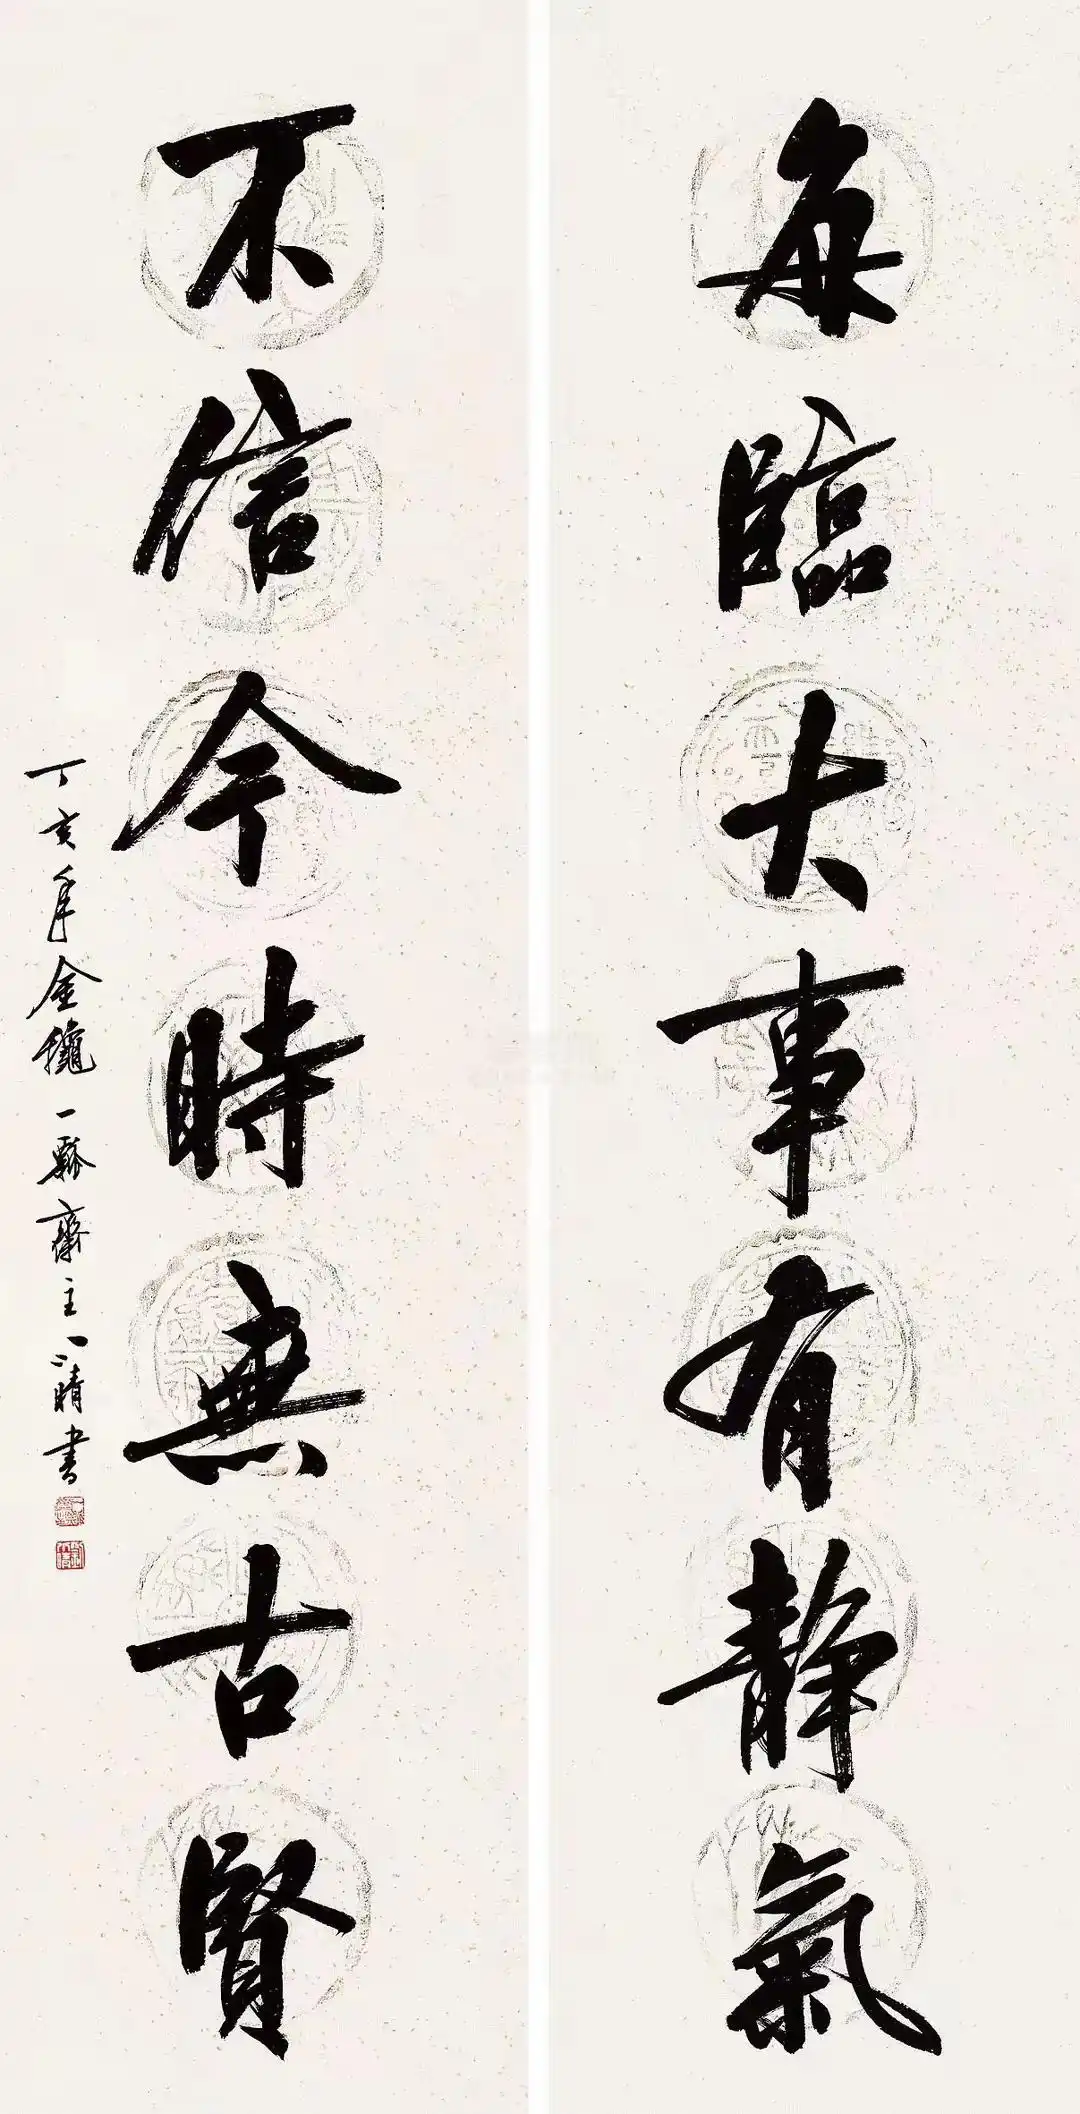 每臨大事有静氣
不信今時無古賢
丁亥年金一瓢齋主晴書